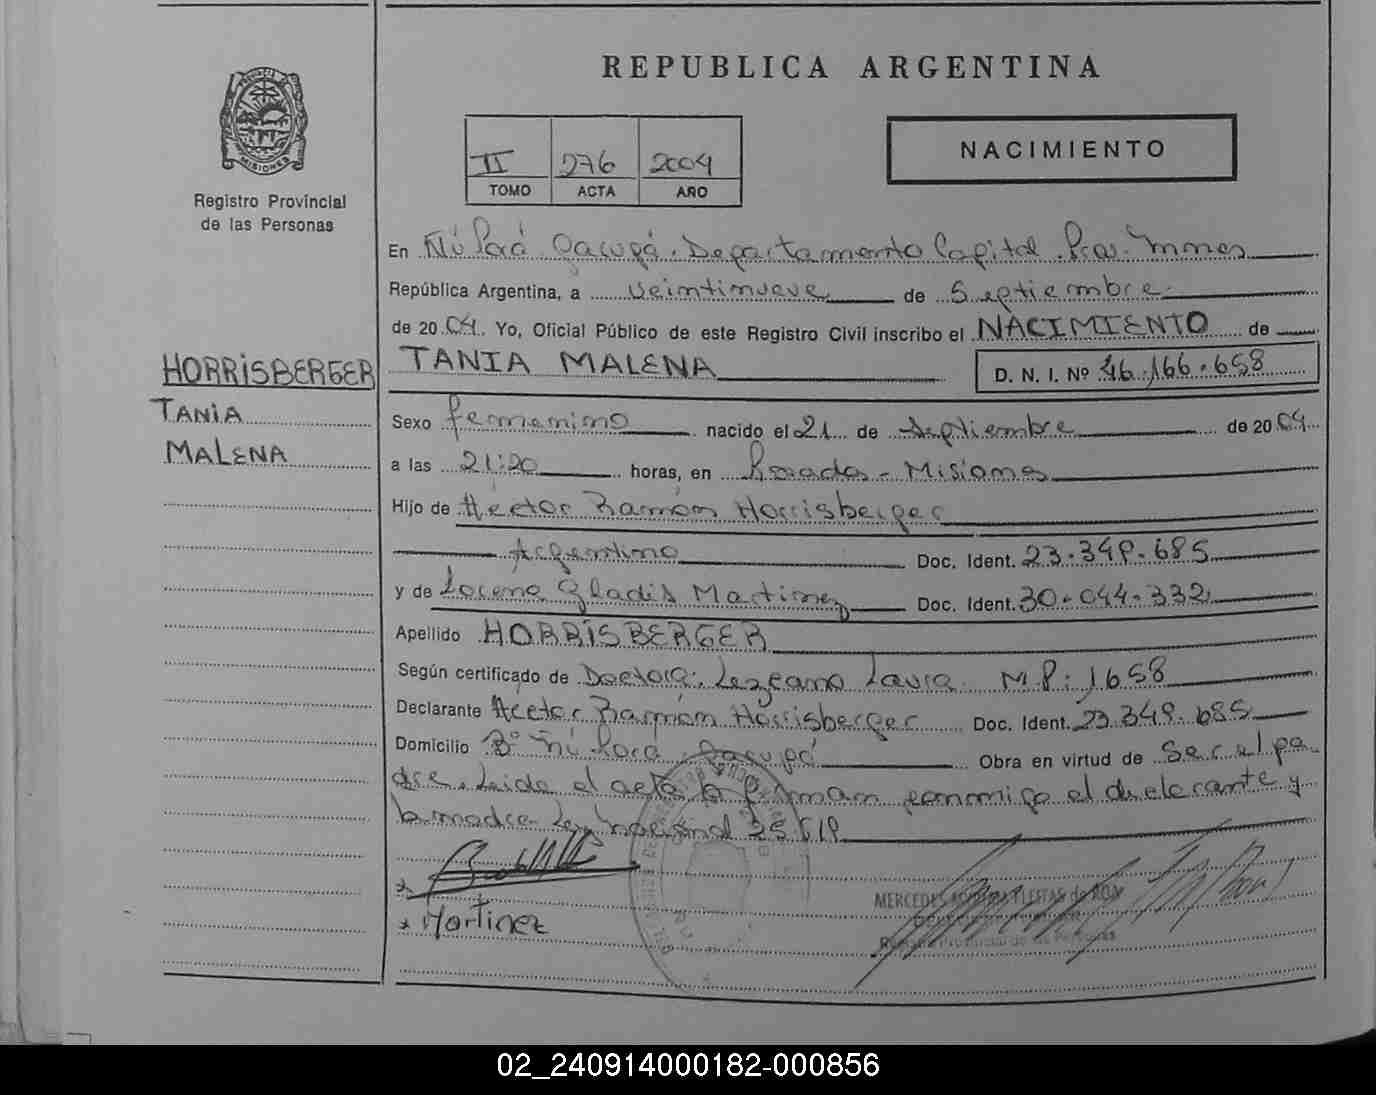 REPUBLICA ARGENTINA
PROVINCIA DE MISIONES
Registro Provincial
de las Personas
II 276 2004
TOMO ACTA AÑO
NACIMIENTO
En Ñú Porá. Garupá. Departamento Capital. Pcia. Mnes
República Argentina, a veintinueve de Septiembre
de 2004. Yo, Oficial Público de este Registro Civil inscribo el NACIMIENTO de
TANIA MALENA D. N. I. Nº 46.166.658
HORRISBERGER
TANIA
MALENA
Sexo femenino nacido el 21 de Septiembre de 2004
a las 21:20 horas, en Posadas - Misiones
Hijo de Héctor Ramón Horrisberger
Argentino Doc. Ident. 23.349.685
y de Lorena Gladis Martinez Doc. Ident. 30.044.332
Apellido HORRISBERGER
Según certificado de Doctora: Lezcano Laura M P: 1658
Declarante Hector Ramón Horrisberger Doc. Ident. 23.349.685
Domicilio Bº Ñú Porá Garupá Obra en virtud de Ser el pa-
dre. Leída el acta la firman conmigo el declarante y
la madre. Ley Nacional
Martinez
MERCEDES
Registro Provincial de las Personas
02_240914000182-000856